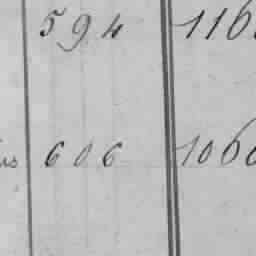 594 116
606 106